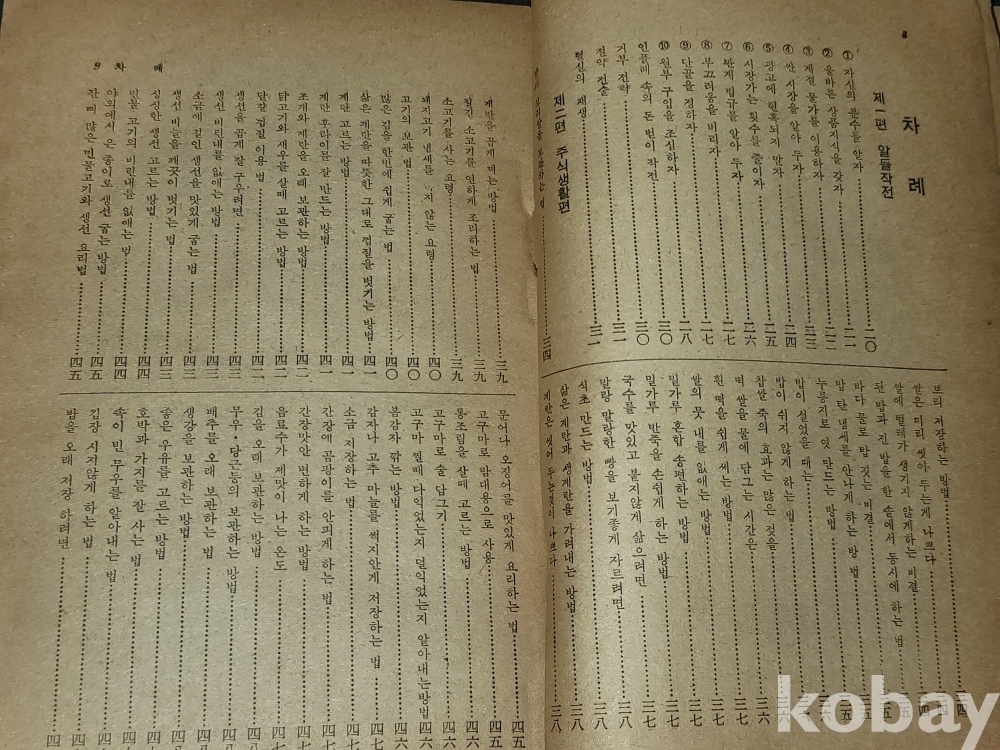 8
차례
제一편 알뜰작전
① 자신의 분수를 알자……二〇
② 올바른 상품지식을 갖자……二二
③ 계절 물가를 이용하자……二三
④ 싼 시장을 알아 두자……二四
⑤ 광고에 현혹되지 말자……二五
⑥ 시장가는 횟수를 줄이자……二六
⑦ 반계 법규를 알아 두자……二七
⑧ 부끄러움을 버리자……二七
⑨ 단골을 정하자……二八
⑩ 원부 구입을 조심하자……三〇
인플레 속의 돈 번이 작전……三〇
거부 전략……三一
절약 전술……三一
헌신의 재생……三二
제二편 주식생활편
보관하는 법……三四
브리 저장하는 방법
쌀은 미리 씻어 두는게 나쁘다
쌀에 벌레가 생기지 않게하는 비결
된 밥과 진 밥을 한 솥에서 동시에 하는 법
바다 물로 밥 짓는 비결
밥 탄 냄새를 안나게 하는 방법
누룽지로 엿 만드는 방법
밥이 설었을 때는
밥이 쉬지 않게 하는 법
찹쌀 죽의 효과는 많은 것을……三六
떡 쌀을 물에 담그는 시간은……三七
흰 떡을 쉽게 써는 방법……三七
쌀의 뭇 내를 없애는 방법……三七
밀가루 혼합 송편하는 방법……三七
밀가루 반죽을 손쉽게 하는 방법……三七
국수를 맛있고 붙지않게 삶으려면……三八
말랑 말랑한 빵을 보기좋게 자르려면……三八
식초 만드는 방법……三八
삶은 계란과 생계란을 가려내는 방법……三八
계란은 씻어 두는것이 나쁘다……三八
9 차례
계란을 곱게 깨는 방법……三九
질긴 소고기를 연하게 조리하는 법……三九
소고기를 사는 요령……三九
돼지고기 냄새를 지 않는 요령……四〇
고기의 보관법……四〇
많은 김을 한번에 쉽게 굽는 법……四〇
삶은 계란을 따뜻한 그대로 껍질을 벗기는 방법……四一
계란 고르는 방법……四一
계란 후라이를 잘 만드는 방법……四一
조개와 계란을 오래 보관하는 방법……四二
닭고기와 새우를 살때 고르는 방법……四二
달걀 껍질 이용법……四二
생선을 곱게 잘 구우려면……四三
생선 비린내를 없애는 방법……四三
소금에 절인 생선을 맛있게 굽는 법……四三
생선 비늘을 깨끗이 벗기는 법……四四
싱싱한 생선 고르는 방법……四四
민물 고기의 비린내를 없애는 법……四四
야외에서 은 종이로 생선 굽는 방법……四五
잔 뼈 많은 민물고기와 생선 요리법……四五
문어나 오징어를 맛있게 요리하는 법……四五
고구마로 밤대용으로 사용……四五
통조림을 살때 고르는 방법……四六
고구마로 술 담그기……四六
고구마 찔때 다익었는지 덜익었는지 알아내는방법……四六
봄감자 깎는 방법……四六
감자나 고추 마늘를 썩지안게 저장하는 법
소금 저장하는 법
간장에 곰팡이를 안피게 하는 법
간장맛안 변하게 하는 방법
음료수가 제맛이 나는 온도
김을 오래 보관하는 방법
무우・당근등의 보관하는 방법
배추를 오래 보관하는 법
생강을 보관하는 방법
좋은 우유를 고르는 방법
호박과 가지를 잘 사는 법
속이 빈 무우를 알아내는 법
김장 시지않게 하는 법
밤을 오래 저장 하려면
kobay